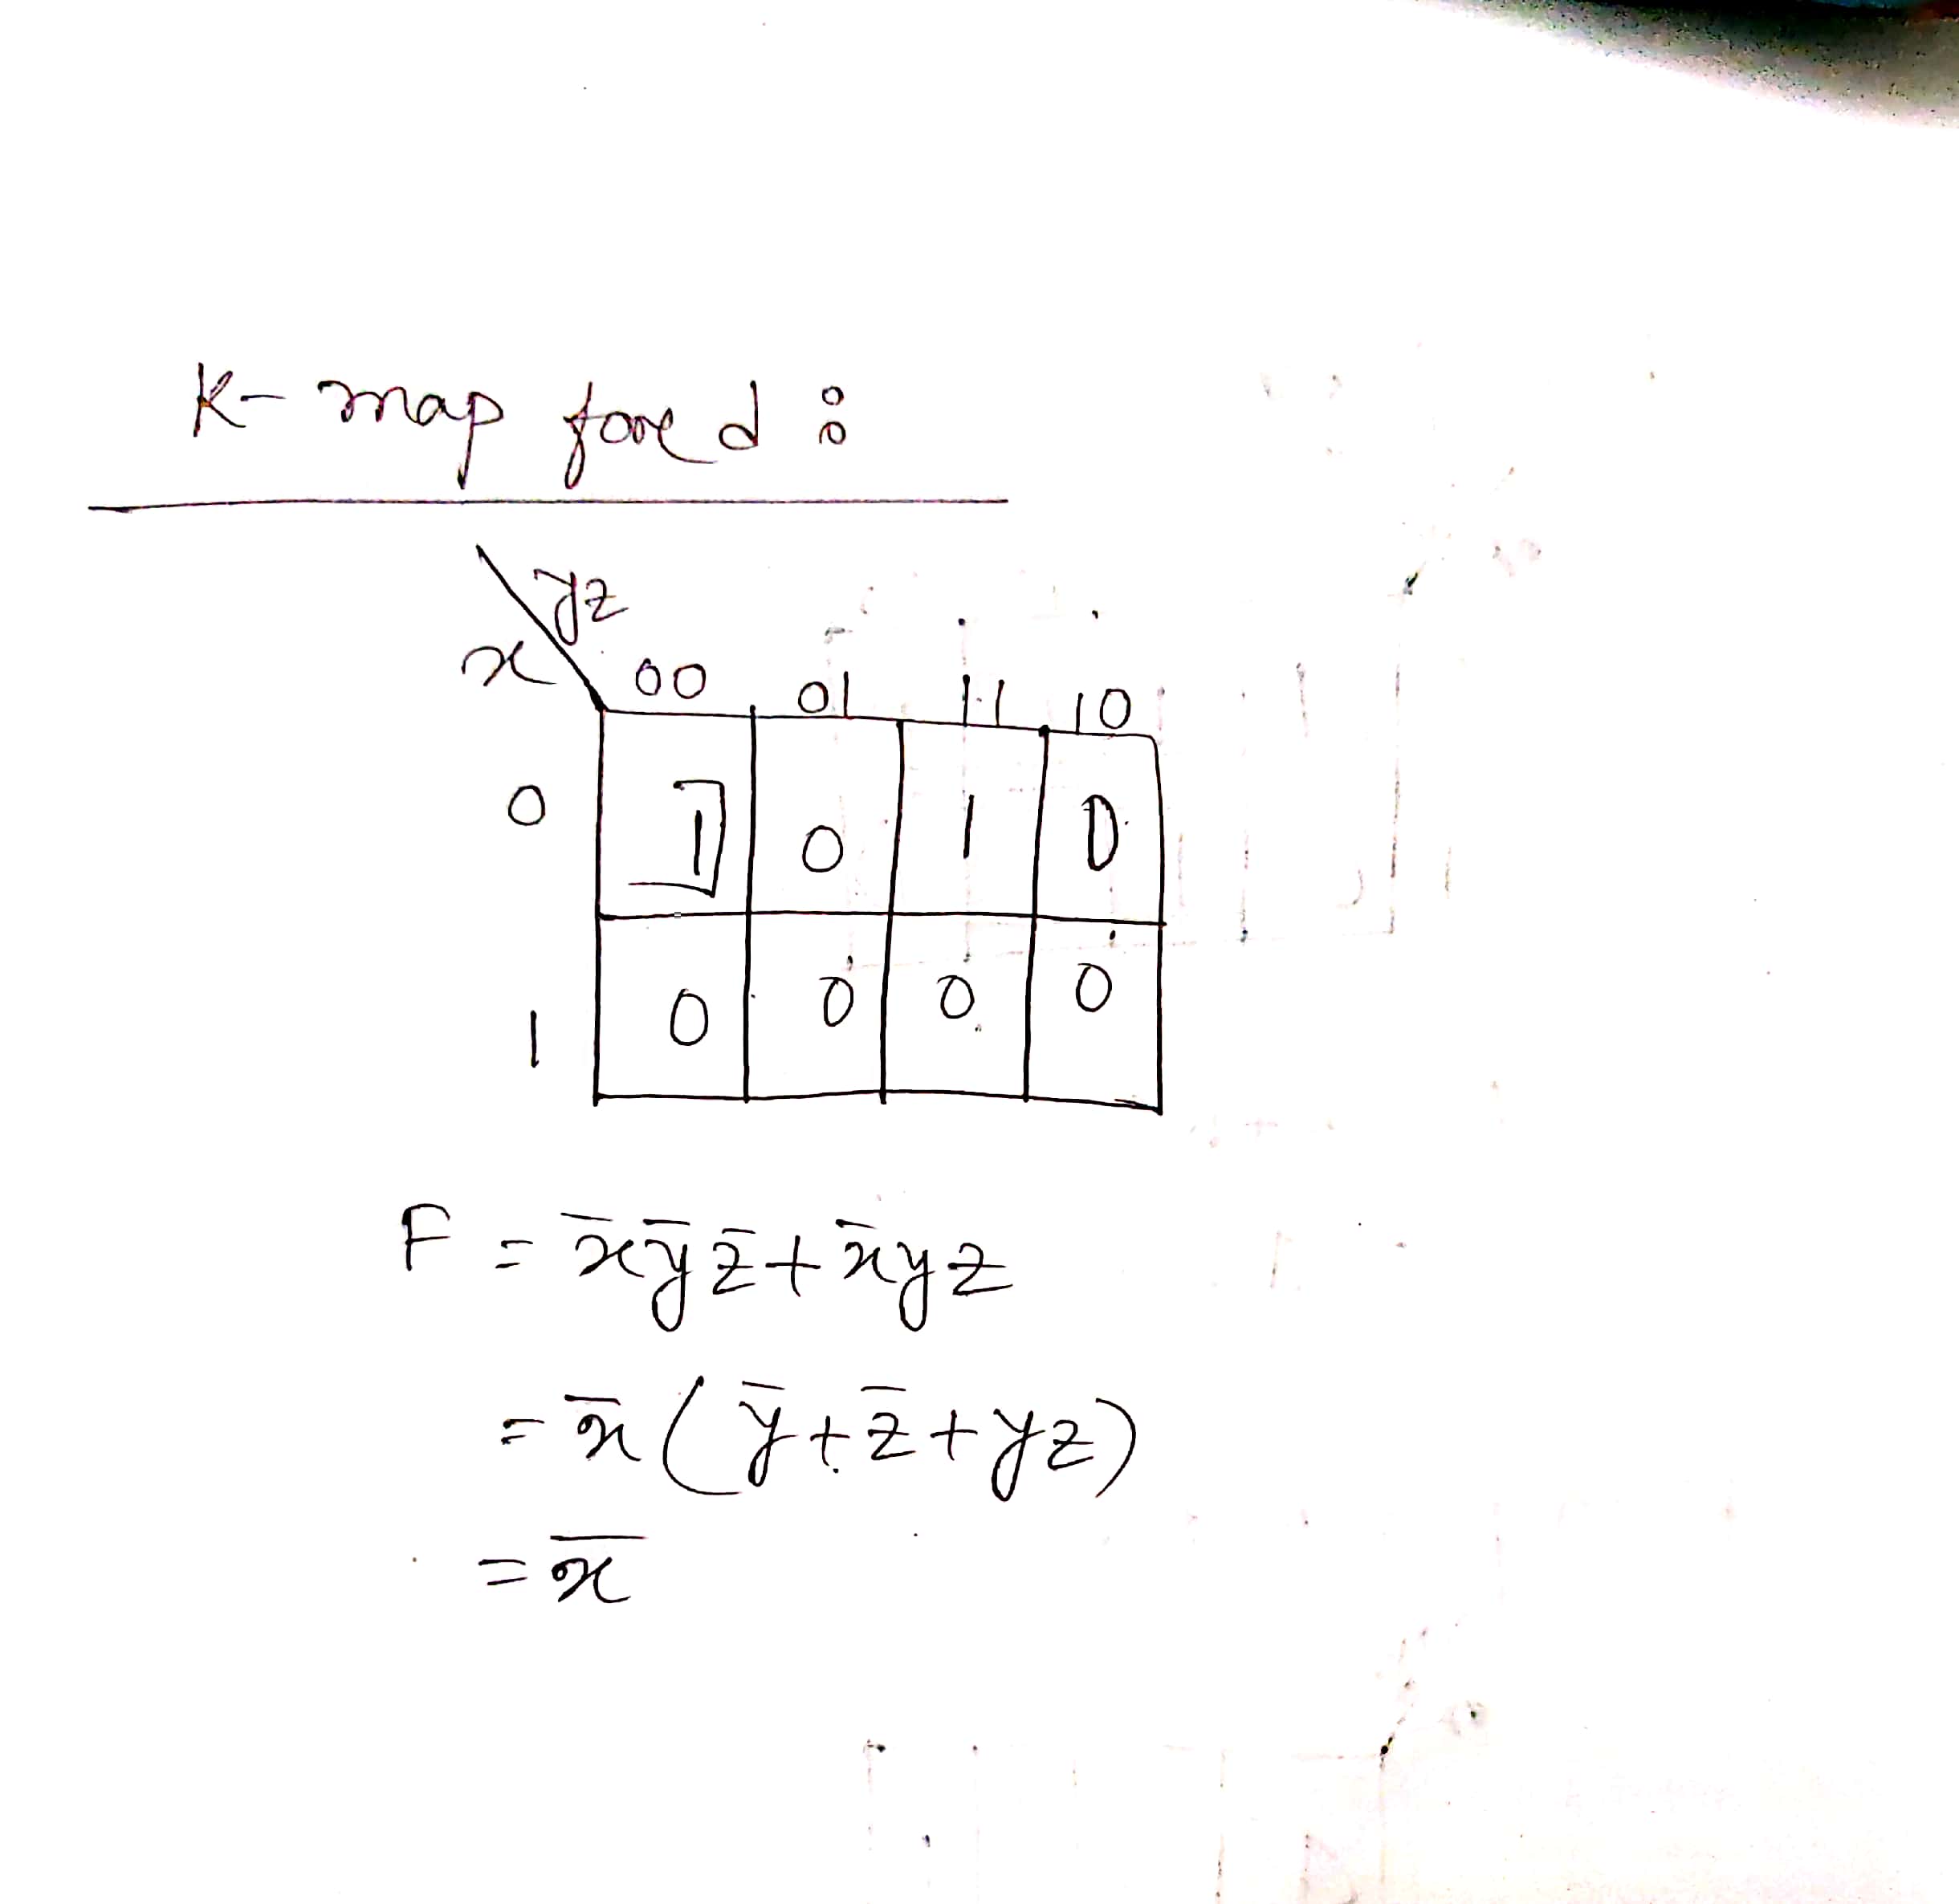 K-map fore d :
yz
x 00 01 11 10
0 1 0 1 0
1 0 0 0 0
F = x̄ȳz̄ + x̄yz
= x̄(ȳ+z̄+yz)
= x̄